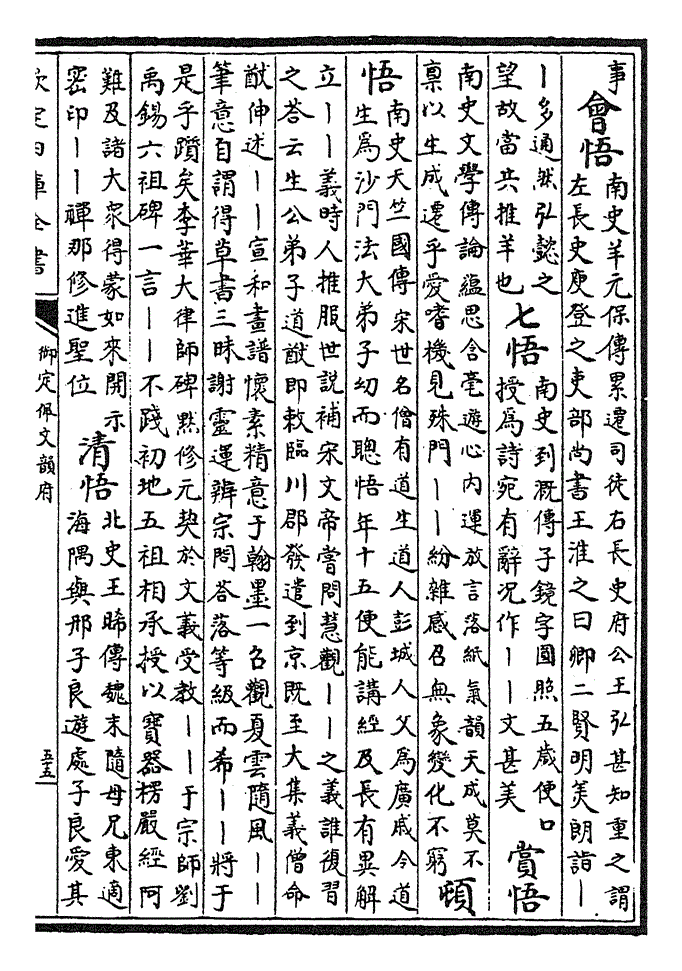 事
會悟
南史羊元保傳累遷司徒右長史府公王弘甚知重之謂
左長史庾登之吏部尚書王淮之曰卿二賢明美朗詣丨
丨多通然弘懿之
望故當共推羊也
七悟
南史到溉傳子鏡字圓照五歲便口
授爲詩宛有辭况作丨丨文甚美
賞悟
南史文學傳論蘊思含毫遊心内運放言落紙氣韻天成莫不
禀以生成遷乎愛嗜機見殊門丨丨紛雜感召無象變化不窮
頓
悟
南史天竺國傳宋世名僧有道生道人彭城人父爲廣戚令道
生爲沙門法大弟子幼而聰悟年十五便能講經及長有異解
立丨丨義時人推服世説補宋文帝嘗問慧觀丨丨之義誰復習
之荅云生公弟子道猷即敕臨川郡發遣到京既至大集義僧命
猷伸述丨丨宣和畫譜懷素精意于翰墨一名觀夏雲隨風丨丨
筆意自謂得草書三昧謝靈運辨宗問荅落等級而希丨丨將于
是乎躓矣李華大律師碑黙修元契於文義受教丨丨于宗師劉
禹錫六祖碑一言丨丨不踐初地五祖相承授以寶器楞嚴經阿
難及諸大衆得蒙如來開示
密印丨丨禪那修進聖位
清悟
北史王晞傳魏末隨母兄東適
海隅與邢子良遊處子良愛其
欽定四庫全書
御定佩文韻府
五五